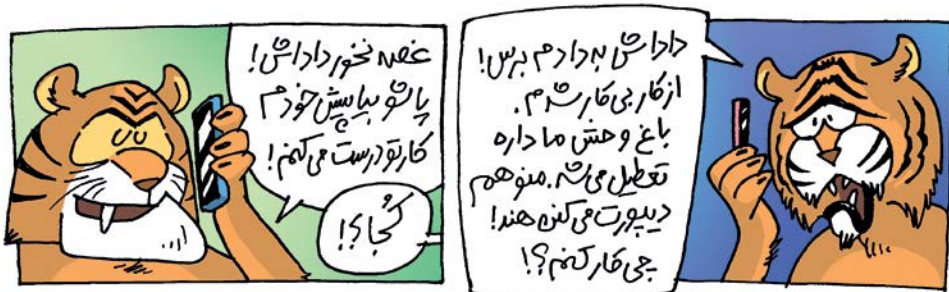 داداش به دادم برس!
از کار بی کار شدم.
باغ وحش ما داره
تعطیل می شه. منو هم
دیپورت می کنن هند!
چی کار کنم؟!
غصه نخور داداش!
پاشو بیا پیش خودم
کارتو درست می کنم!
کُجا؟!